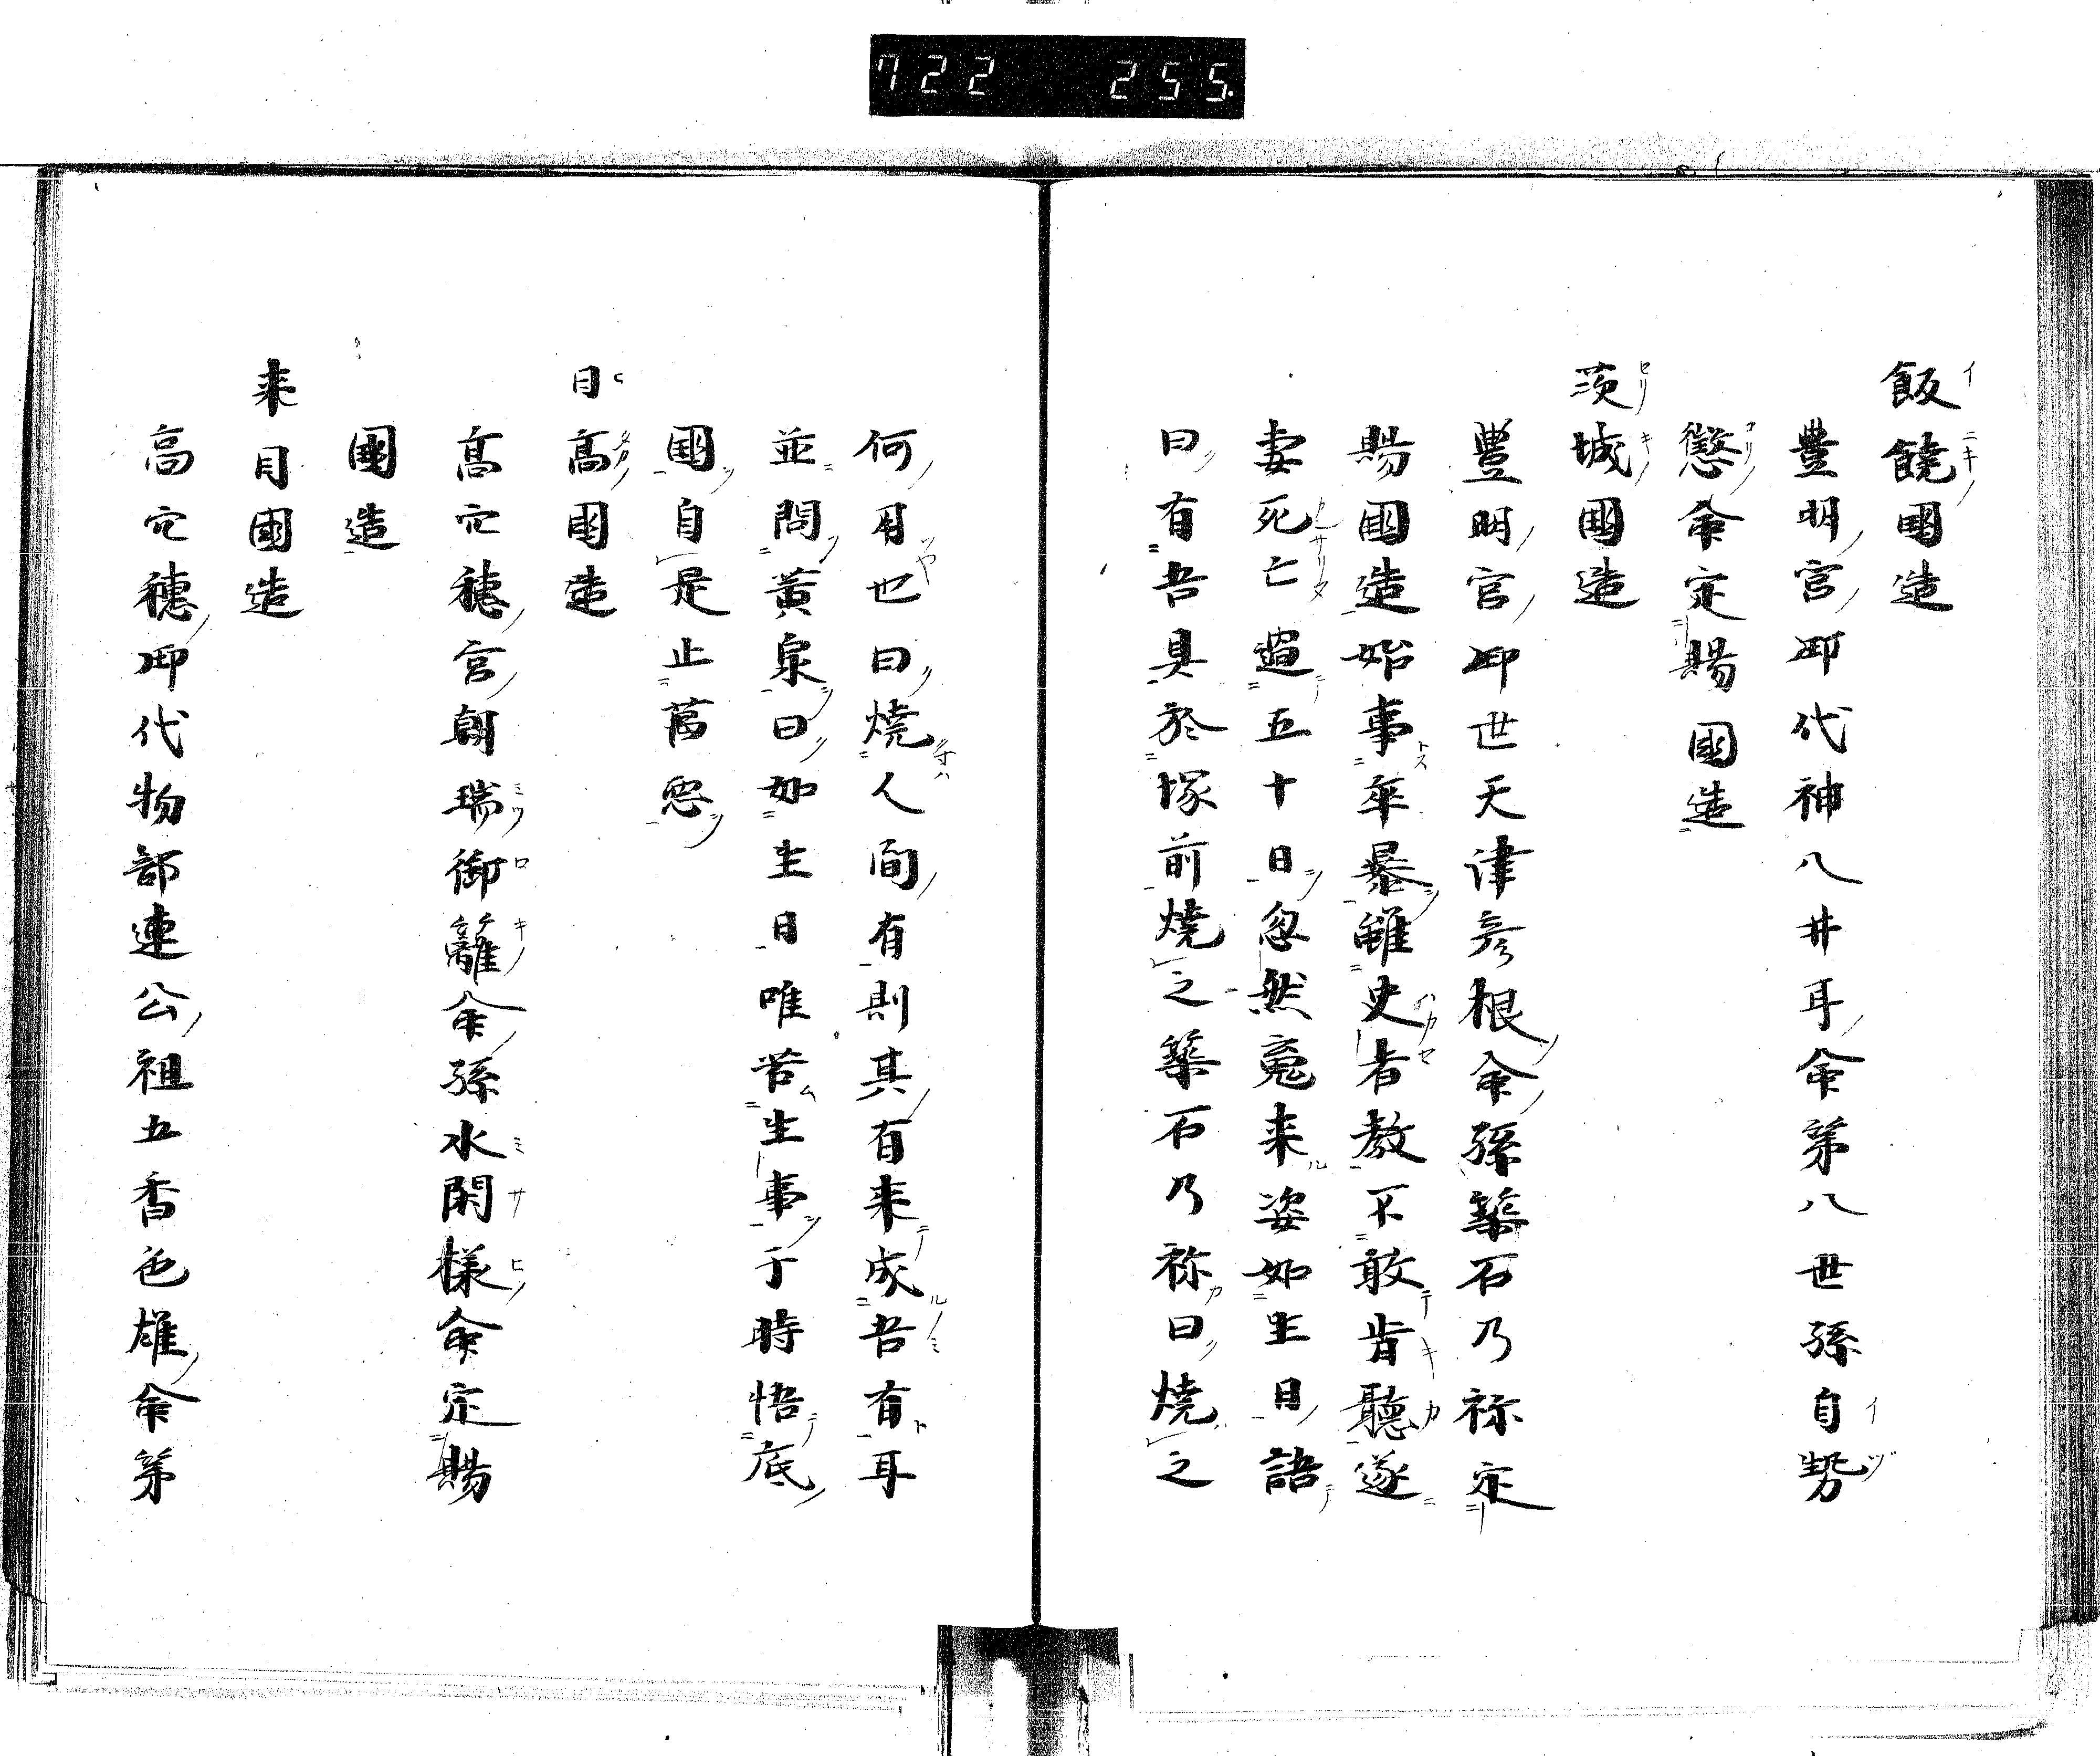 722 255
飯饒國造
豊明宮御代神八井耳命第八世孫自勢
懲命定賜國造
茨城國造
豊明宮御世天津彦根命孫築石乃祢定
賜國造始事卒暴雖史者教不敢肯聽遂
妻死亡過五十日忽然鬼来姿如生日語
曰有吾具於塚前焼之築石乃祢曰焼之
何用也曰焼人間有則其有来成吾有耳
並問黄泉曰如生日唯苦生事于時悟底
國自是止萬惡
日高國造
高穴穂宮朝瑞御籬命孫水閇様命定賜
國造
来目國造
高穴穂御代物部連公祖五香色雄命第